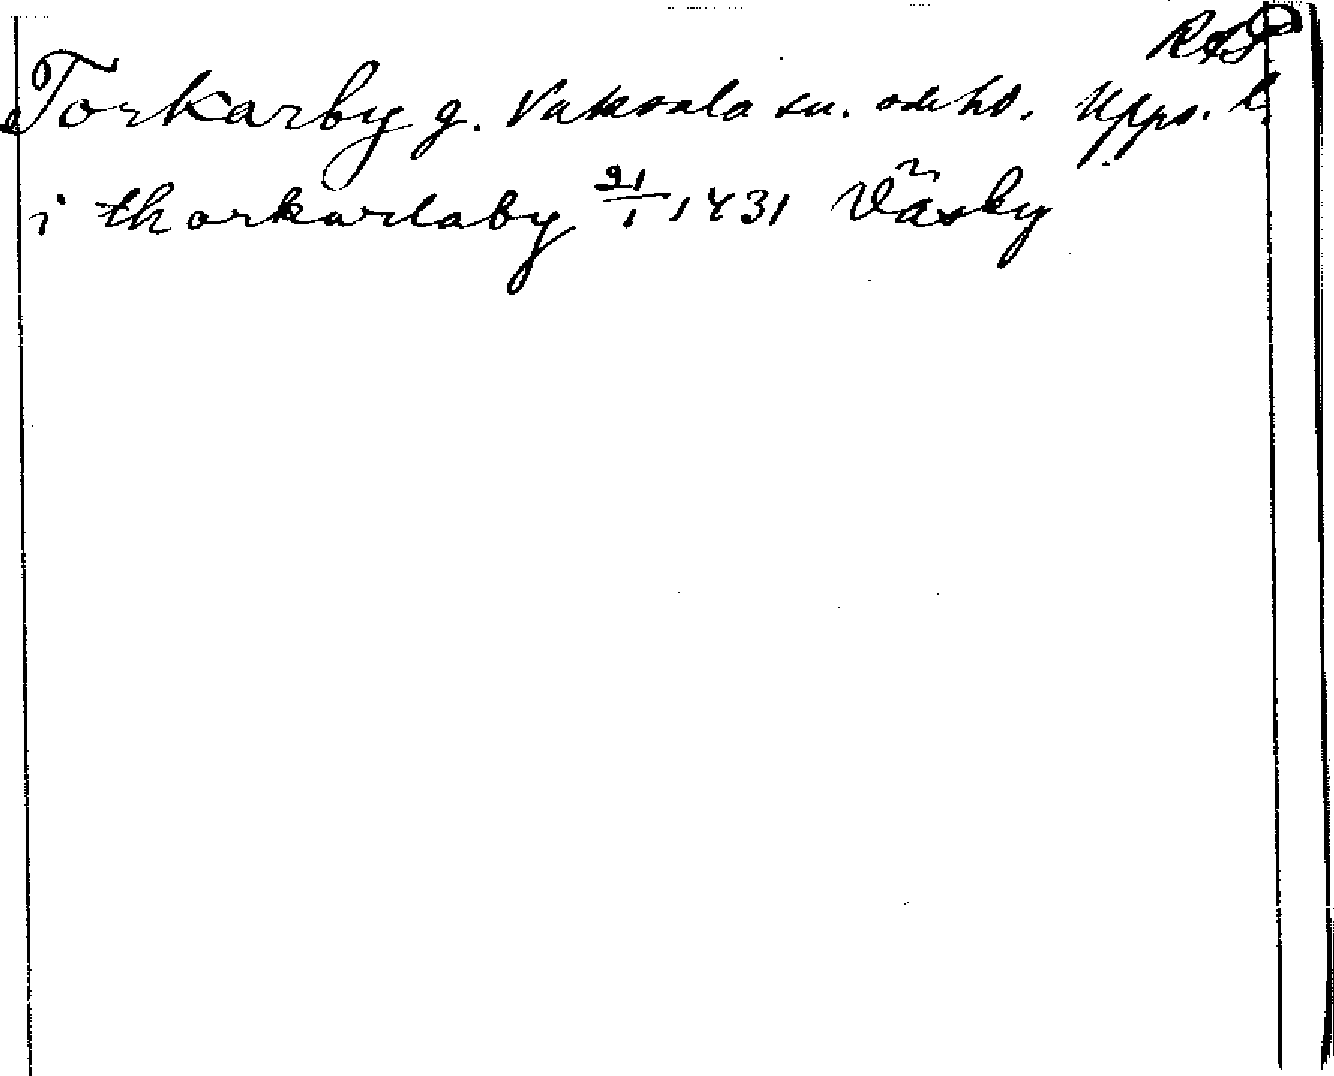 Torkarby g. Vaksala sn. o. hd. Upps. l.
i thorkarlaby 21/1 1431 Väsby